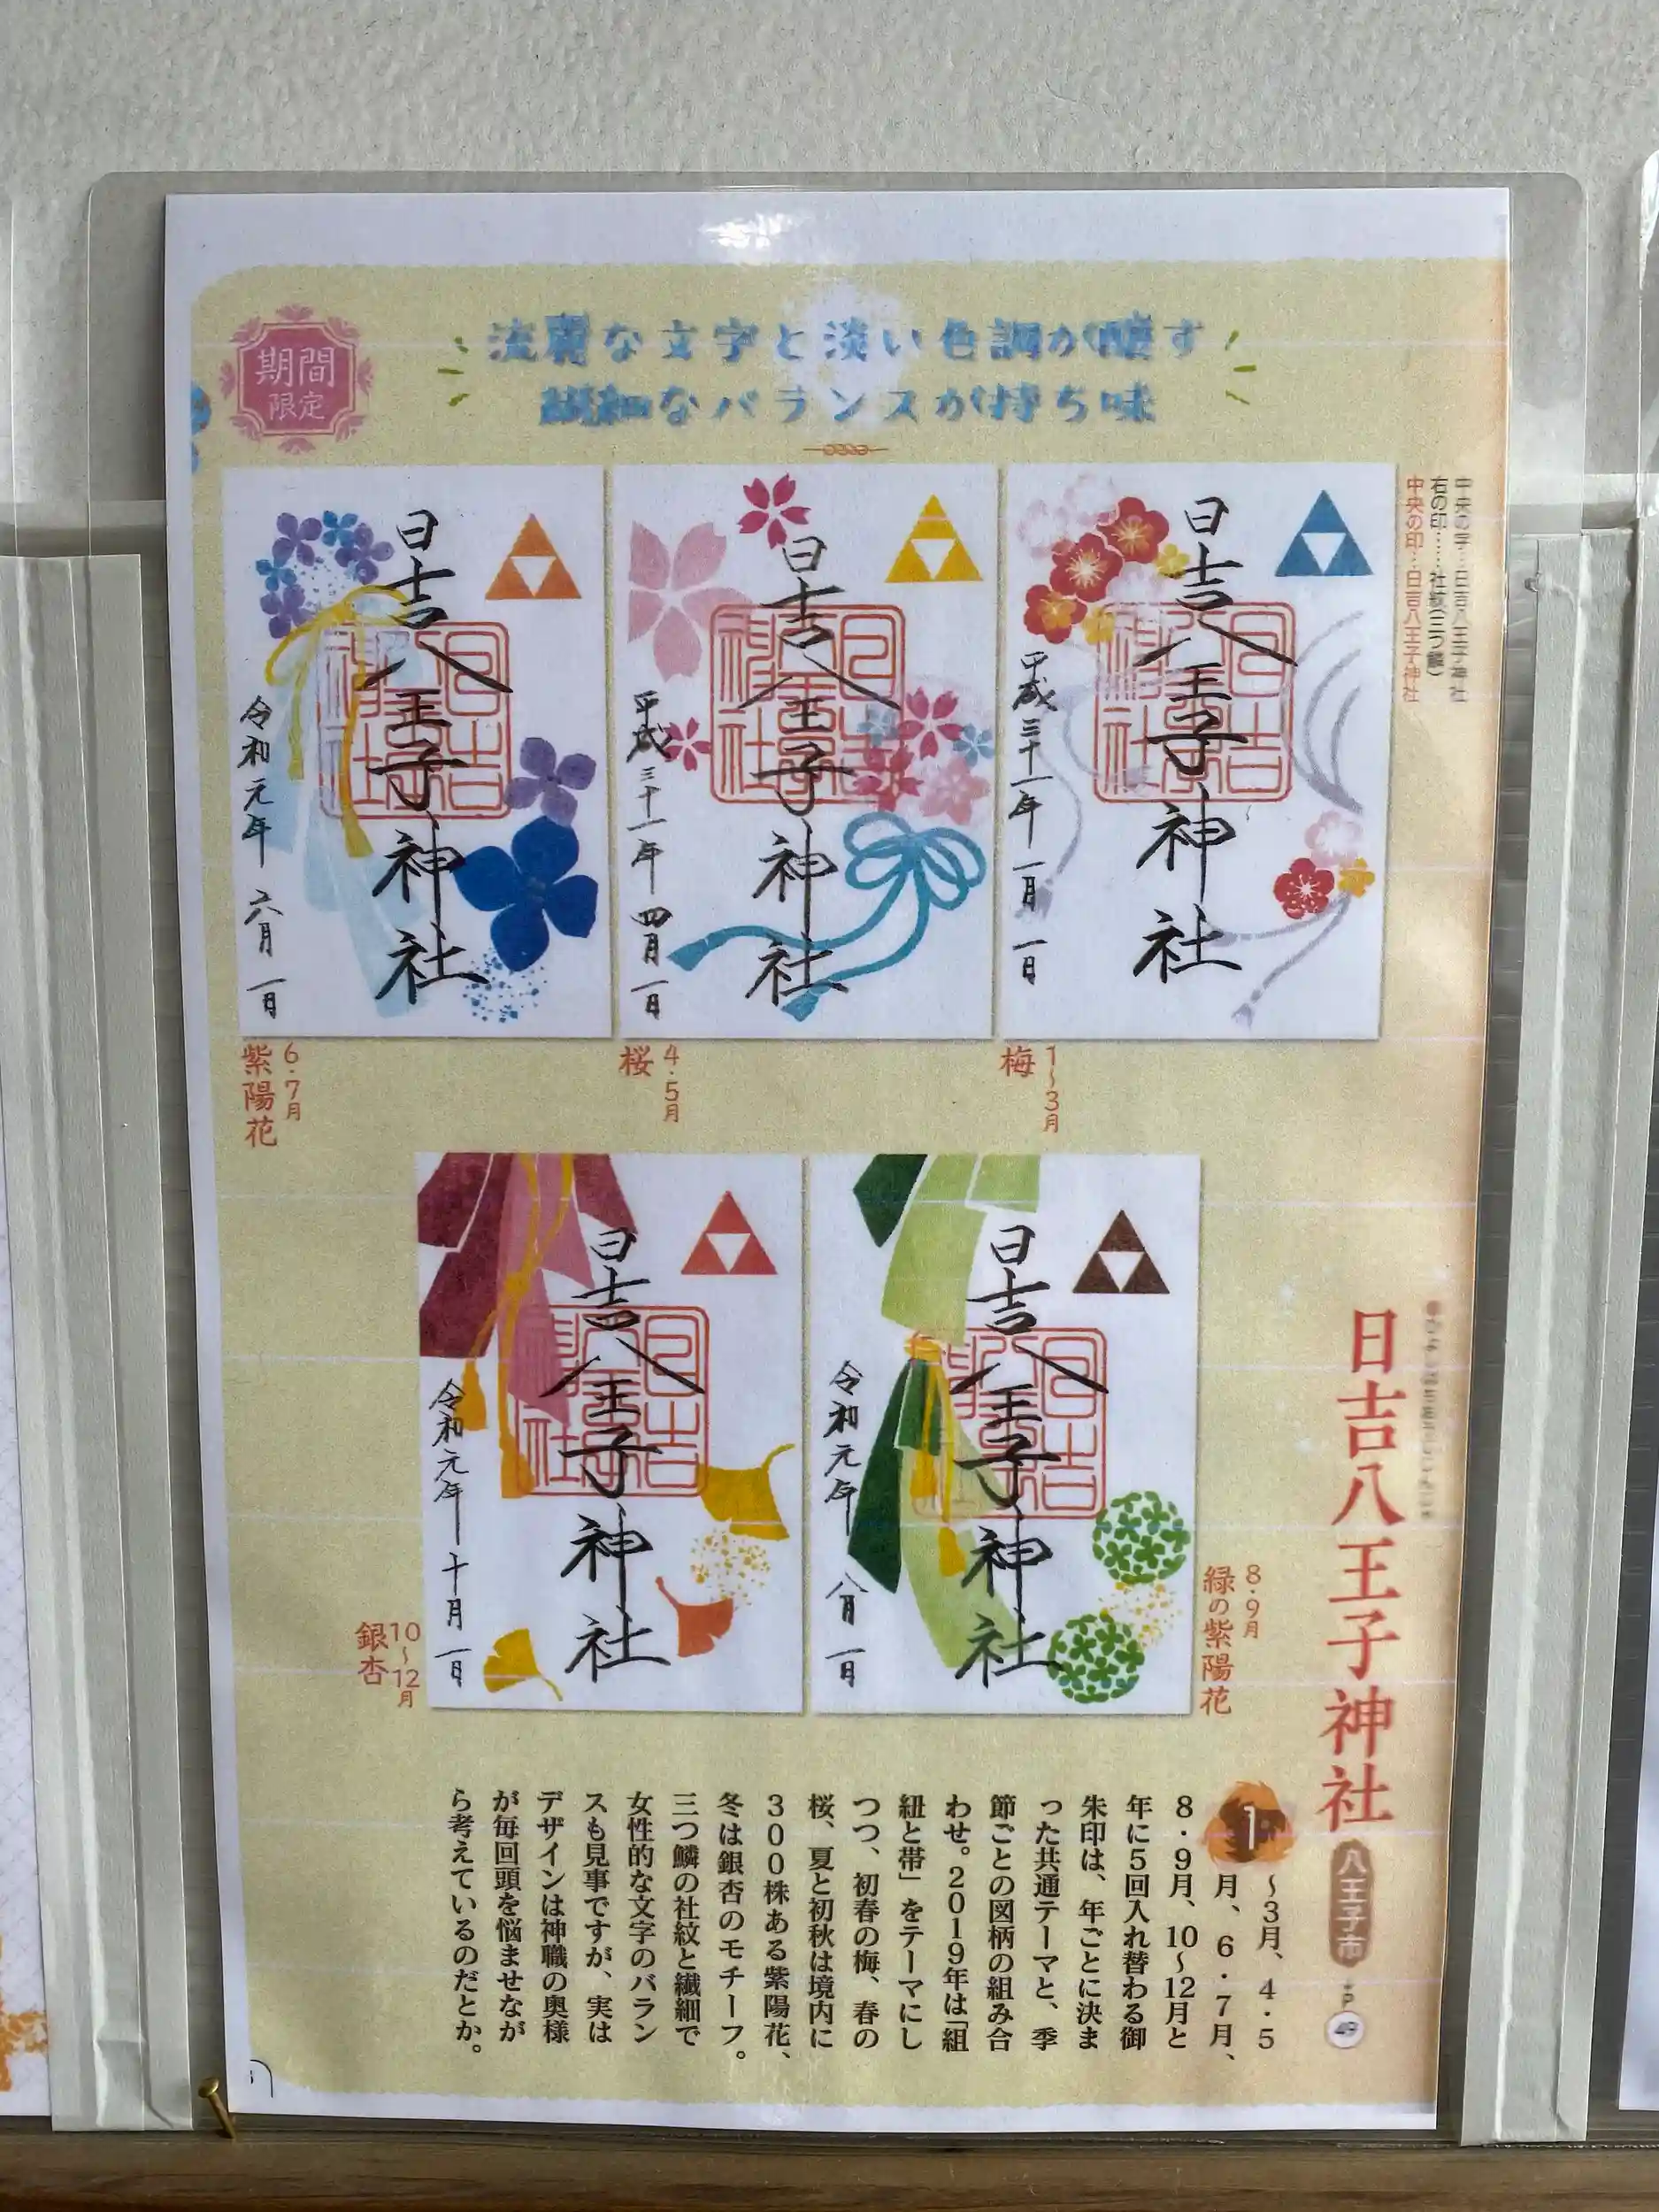 期間
限定
流麗な文字と淡い色調が醸す
繊細なバランスが持ち味
中央の字…日吉八王子神社
右の印……社紋(三つ鱗)
中央の印…日吉八王子神社
日吉八王子神社
平成三十一年一月一日
日吉八王子神社
1~3月
梅
日吉八王子神社
平成三十一年四月一日
日吉八王子神社
4・5月
桜
日吉八王子神社
令和元年六月一日
日吉八王子神社
6・7月
紫陽花
日吉八王子神社
令和元年八月一日
日吉八王子神社
8・9月
緑の紫陽花
日吉八王子神社
令和元年十月一日
日吉八王子神社
10~12月
銀杏
日吉八王子神社
八王子市
P
49
1~3月、4・5
月、6・7月、
8・9月、10~12月と
年に5回入れ替わる御
朱印は、年ごとに決ま
った共通テーマと、季
節ごとの図柄の組み合
わせ。2019年は「組
紐と帯」をテーマにし
つつ、初春の梅、春の
桜、夏と初秋は境内に
300株ある紫陽花、
冬は銀杏のモチーフ。
三つ鱗の社紋と繊細で
女性的な文字のバラン
スも見事ですが、実は
デザインは神職の奥様
が毎回頭を悩ませなが
ら考えているのだとか。